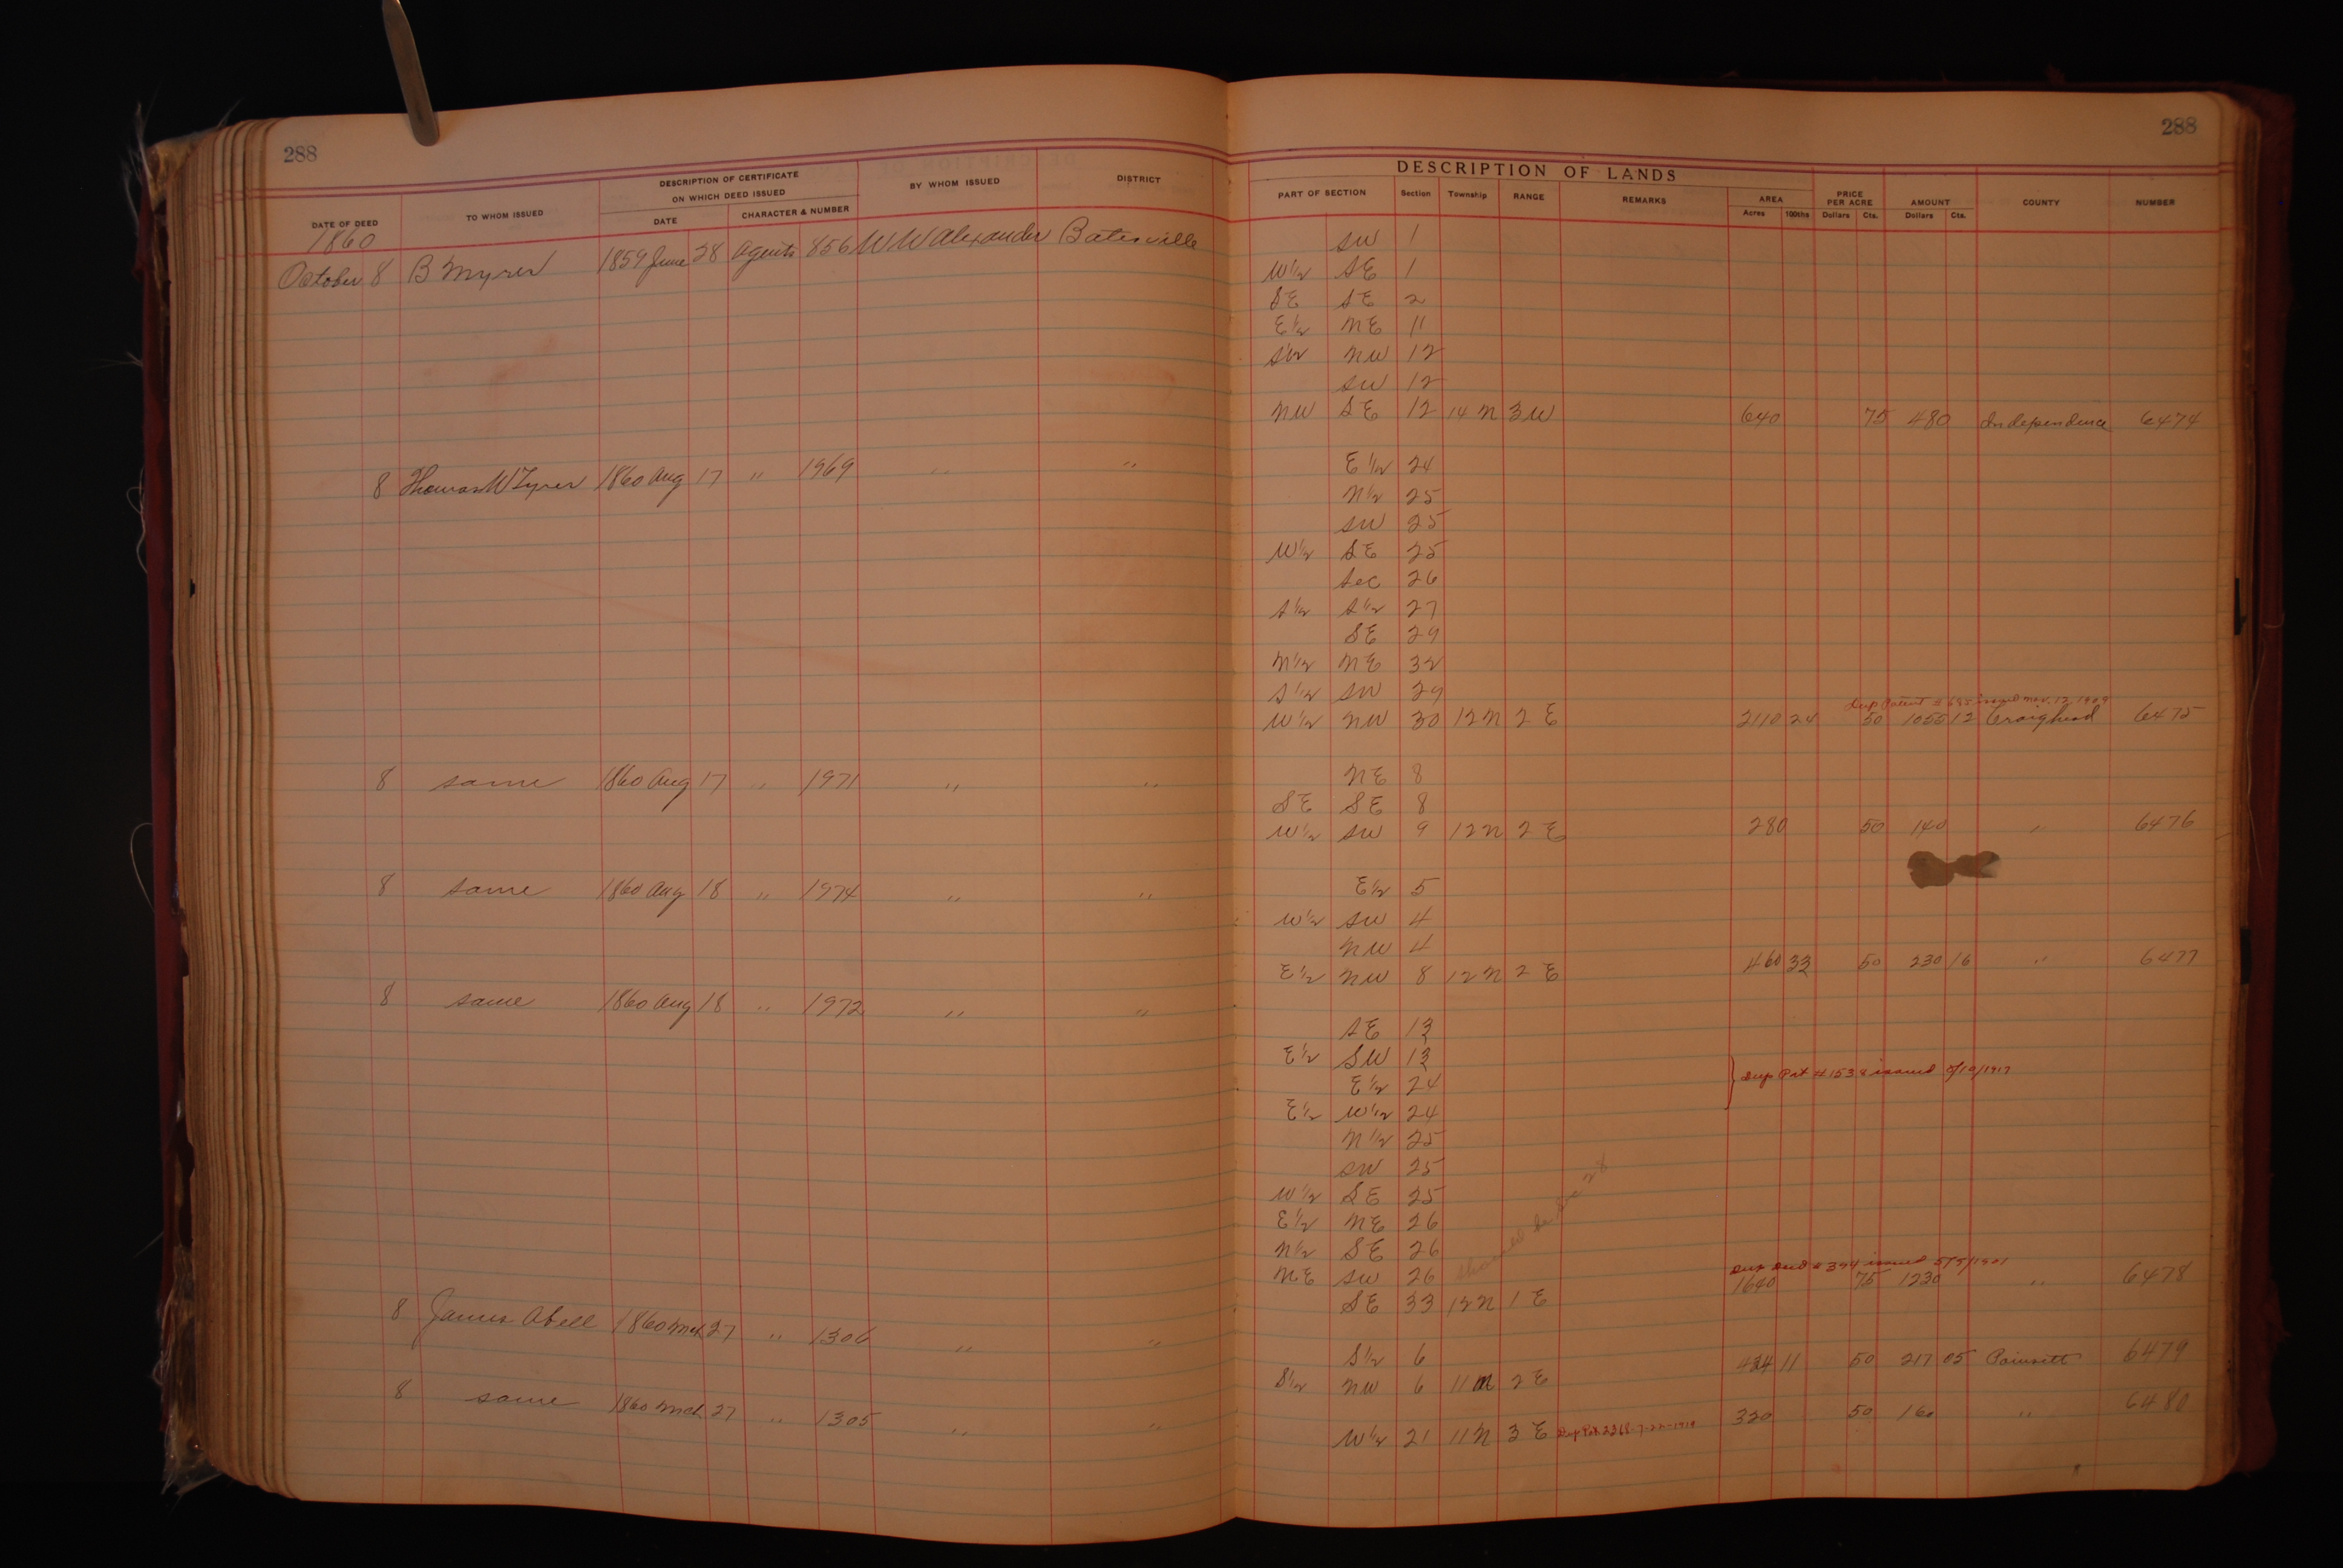 288
288
DESCRIPTION OF LANDS
DATE OF DEED
TO WHOM ISSUED
DESCRIPTION OF CERTIFICATE
ON WHICH DEED ISSUED
DATE
CHARACTER & NUMBER
BY WHOM ISSUED
DISTRICT
PART OF SECTION
Section
Township
RANGE
REMARKS
AREA
Acres
100ths
PRICE
PER ACRE
Dollars
Cts.
AMOUNT
Dollars
Cts.
COUNTY
NUMBER
1860
October 8 B Myrer 1859 June 28 Agents 856 W W Alexander Batesville
SW 1
W½ SE 1
SE SE 2
E½ NE 11
S½ NW 12
SW 12
NW SE 12 14 N 3 W 640 75 480 Independence 6474
8 Thomas W Tyrer 1860 Aug 17 " 1969 " "
E½ 24
N½ 25
SW 25
W½ SE 25
Sec 26
S½ S½ 27
SE 29
N½ NE 32
S½ SW 29
Dup Patent # 685 issued Mar. 12, 1909
W½ NW 30 12 N 2 E 2110 24 50 1055 12 Craighead 6475
8 same 1860 Aug 17 " 1971 " "
NE 8
SE SE 8
W½ SW 9 12 N 2 E 280 50 140 " 6476
8 same 1860 Aug 18 " 1974 " "
E½ 5
W½ SW 4
NW 4
E½ NW 8 12 N 2 E 460 33 50 230 16 " 6477
8 same 1860 Aug 18 " 1972 " "
SE 13
E½ SW 13
Dup Pat # 1538 issued /10/1917
E½ 24
E½ W½ 24
N½ 25
SW 25
W½ SE 25
E½ NE 26
N½ SE 26
NE SW 26
should be
Dup Deed # 394 issued 5/5/1901
SE 33 12 N 1 E 1640 75 1230 " 6478
8 James Abell 1860 Mch 27 " 1306 " "
S½ 6
S½ NW 6 11 N 2 E 434 11 50 217 05 Poinsett 6479
8 same 1860 Mch 27 " 1305 " "
W½ 21 11 N 3 E Dup Pat 2368-7-22-1918 320 50 160 " 6480